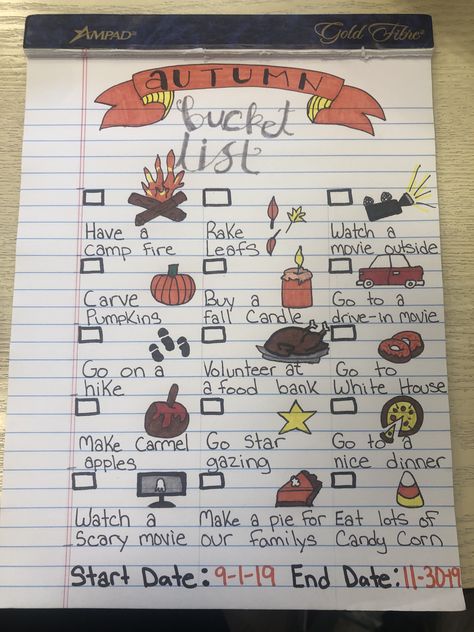 AMPAD
Gold Fibre
AUTUMN
bucket
list
Have a
camp fire
Rake
Leafs
Watch a
movie outside
Carve
Pumpkins
Buy a
fall Candle
Go to a
drive-in movie
Go on a
hike
Volunteer at
a food bank
Go to
White House
Make Carmel
apples
Go Star
gazing
Go to a
nice dinner
Watch a
Scary movie
Make a pie for
our familys
Eat lots of
Candy Corn
Start Date: 9-1-19 End Date: 11-30-19